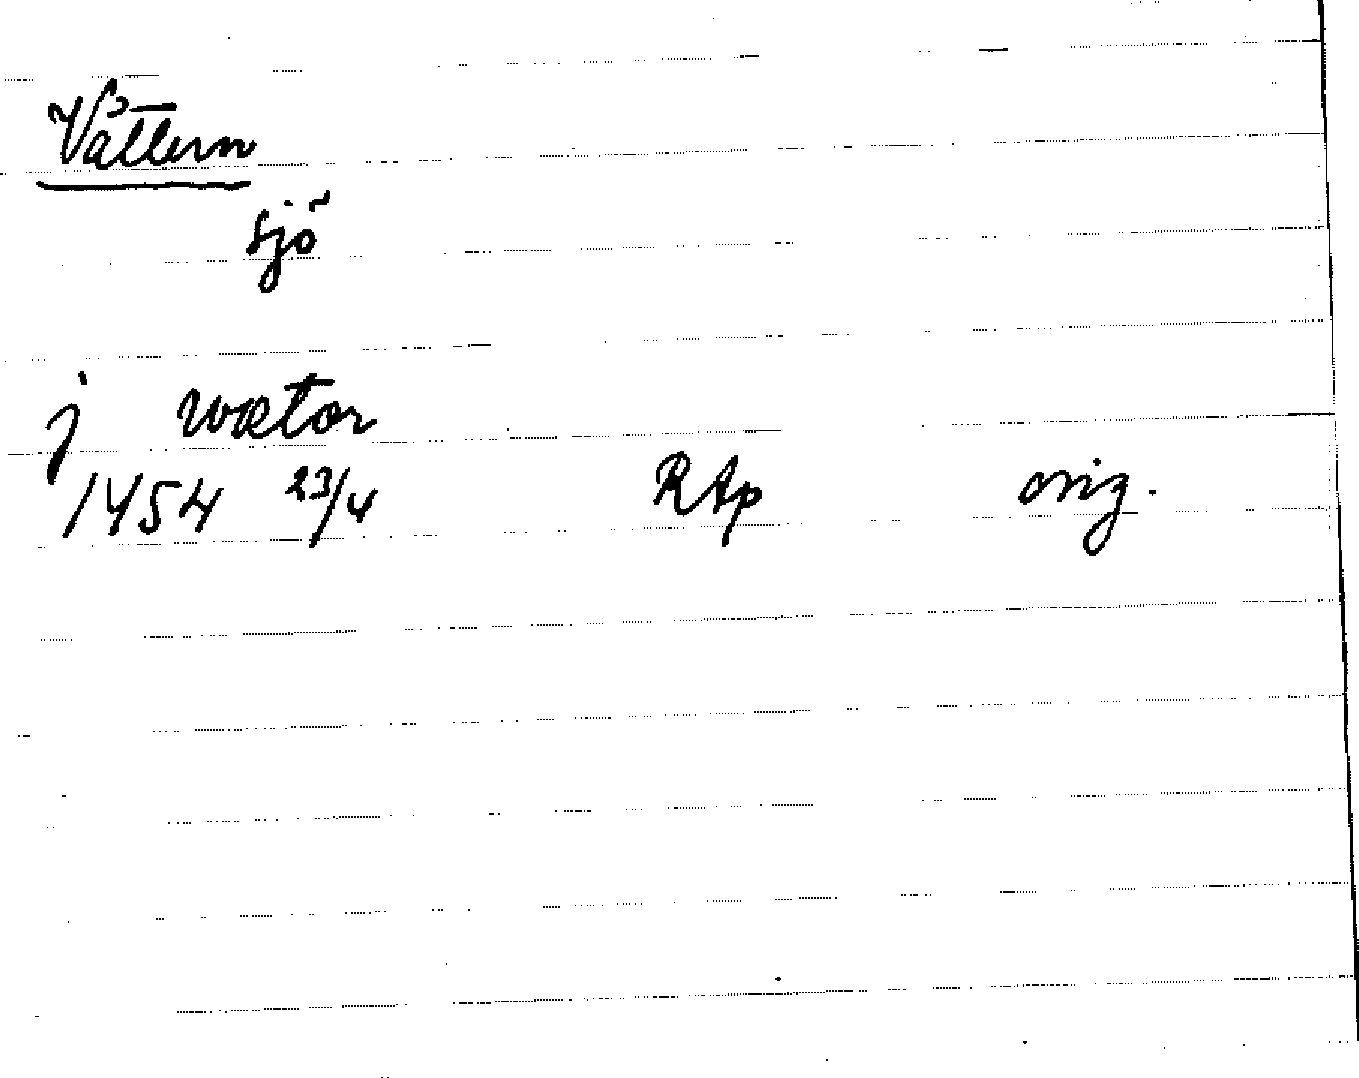 Vättern
sjö
j wætor
1454 23/4 RAp orig.